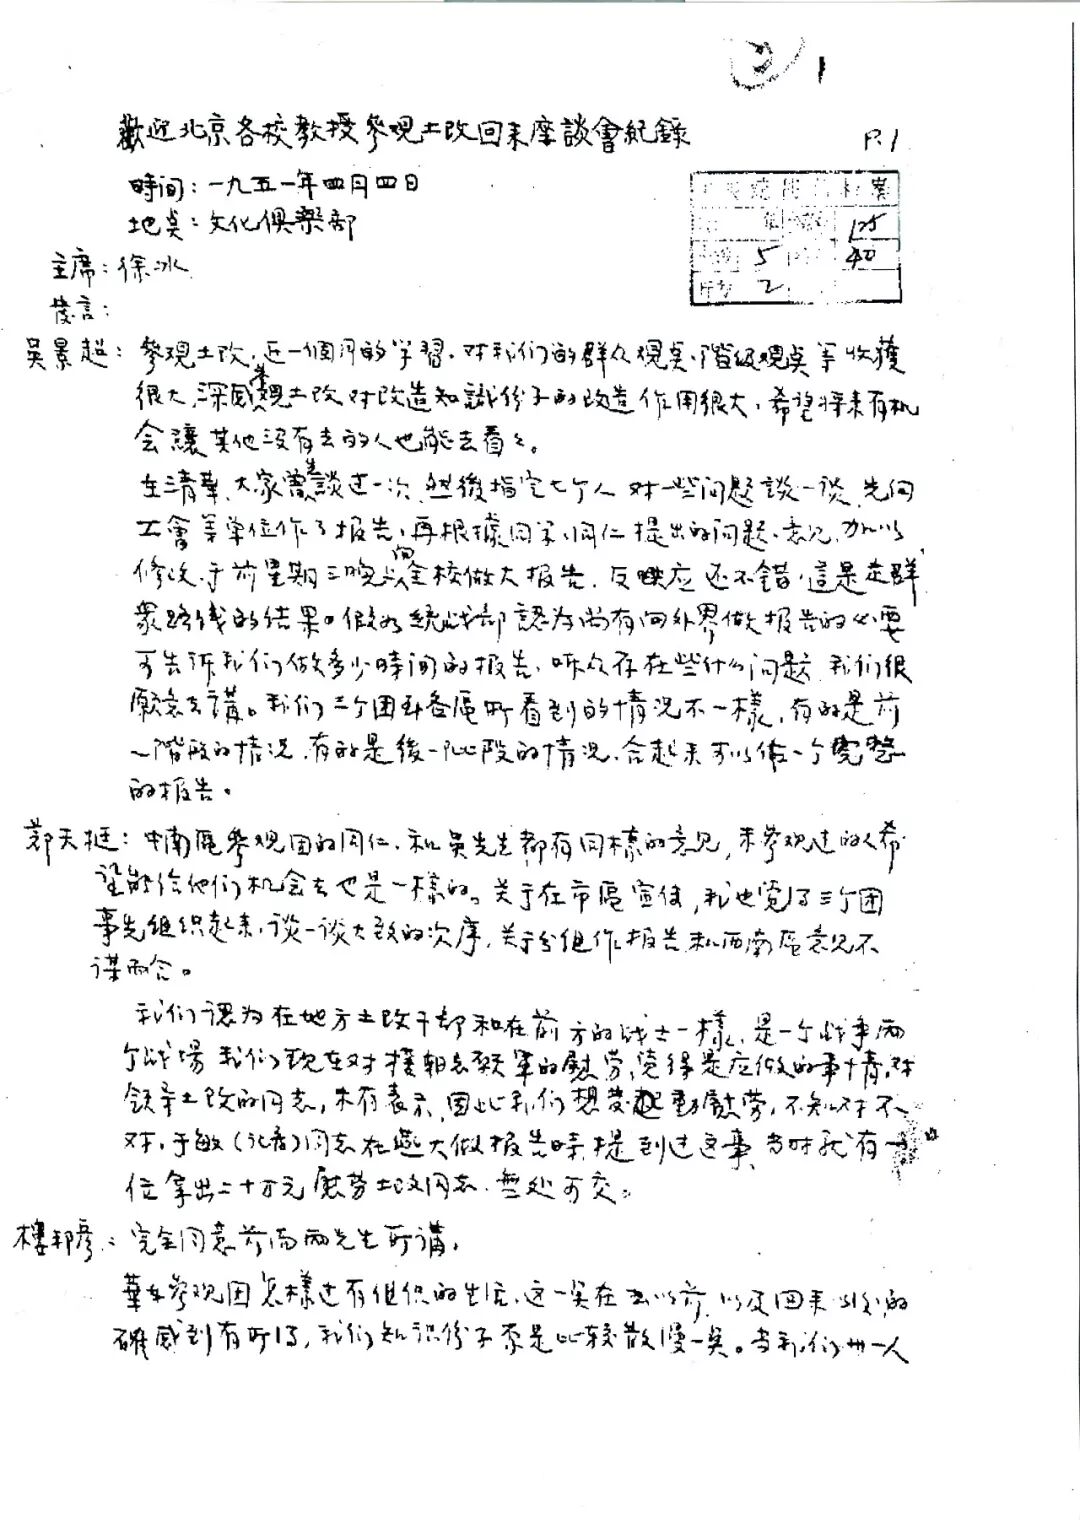 1
歡迎北京各校教授參观土改回来座談會紀錄
P.1
時间：一九五一年四月四日
地奌：文化俱樂部
125
5
40
2
主席：徐冰
发言：
吴景超：參观土改，近一個月的学習，对我们的群众观奌、階级观奌等收獲
很大，深感參观土改对改造知識份子的改造作用很大，希望将来有机
会讓其他没有去的人也能去看看。
在清華，大家曾先談过一次，然後指定七个人对一些问题談一談，先向
工會等单位作了报告，再根據同学、同仁提出的问题、意见，加以
修改，于前星期三晚向全校做大报告，反映应还不错，這是走群
衆路线的结果。假如统战部認为尚有向外界做报告的必要
可告訴我们做多少時间的报告，听众存在些什么问题，我们很
願意去講。我们三个团到各區所看到的情况不一樣，有的是前
一階段的情况，有的是後一阶段的情况，合起来可以作一个完整
的报告。
郑天挺：中南區參观团的同仁，和吴先生都有同樣的意见，未參观过的人希
望能给他们机会去也是一樣的。关于在市區宣传，我也觉得三个团
事先组织起来，谈一谈大致的次序，关于分组作报告和西南區意见不
谋而合。
我们認为在地方土改干部和在前方的战士一樣，是一个战争两
个战場，我们现在对援朝志願軍的慰劳，觉得是应做的事情，对
领导土改的同志，未有表示，因此我们想发起劳動慰劳，不知对不
对，于敏（記者）同志在燕大做报告時提到过这事，当时就有一
位拿出二十万元慰劳土改同志，無处可交。
樓邦彦：完全同意前面两先生所講，
華东參观团怎樣过有组织的生活，这一奌在去以前，以及回来以後的
確感到有所得，我们知识份子本是比较散漫一奌。当我们卅一人